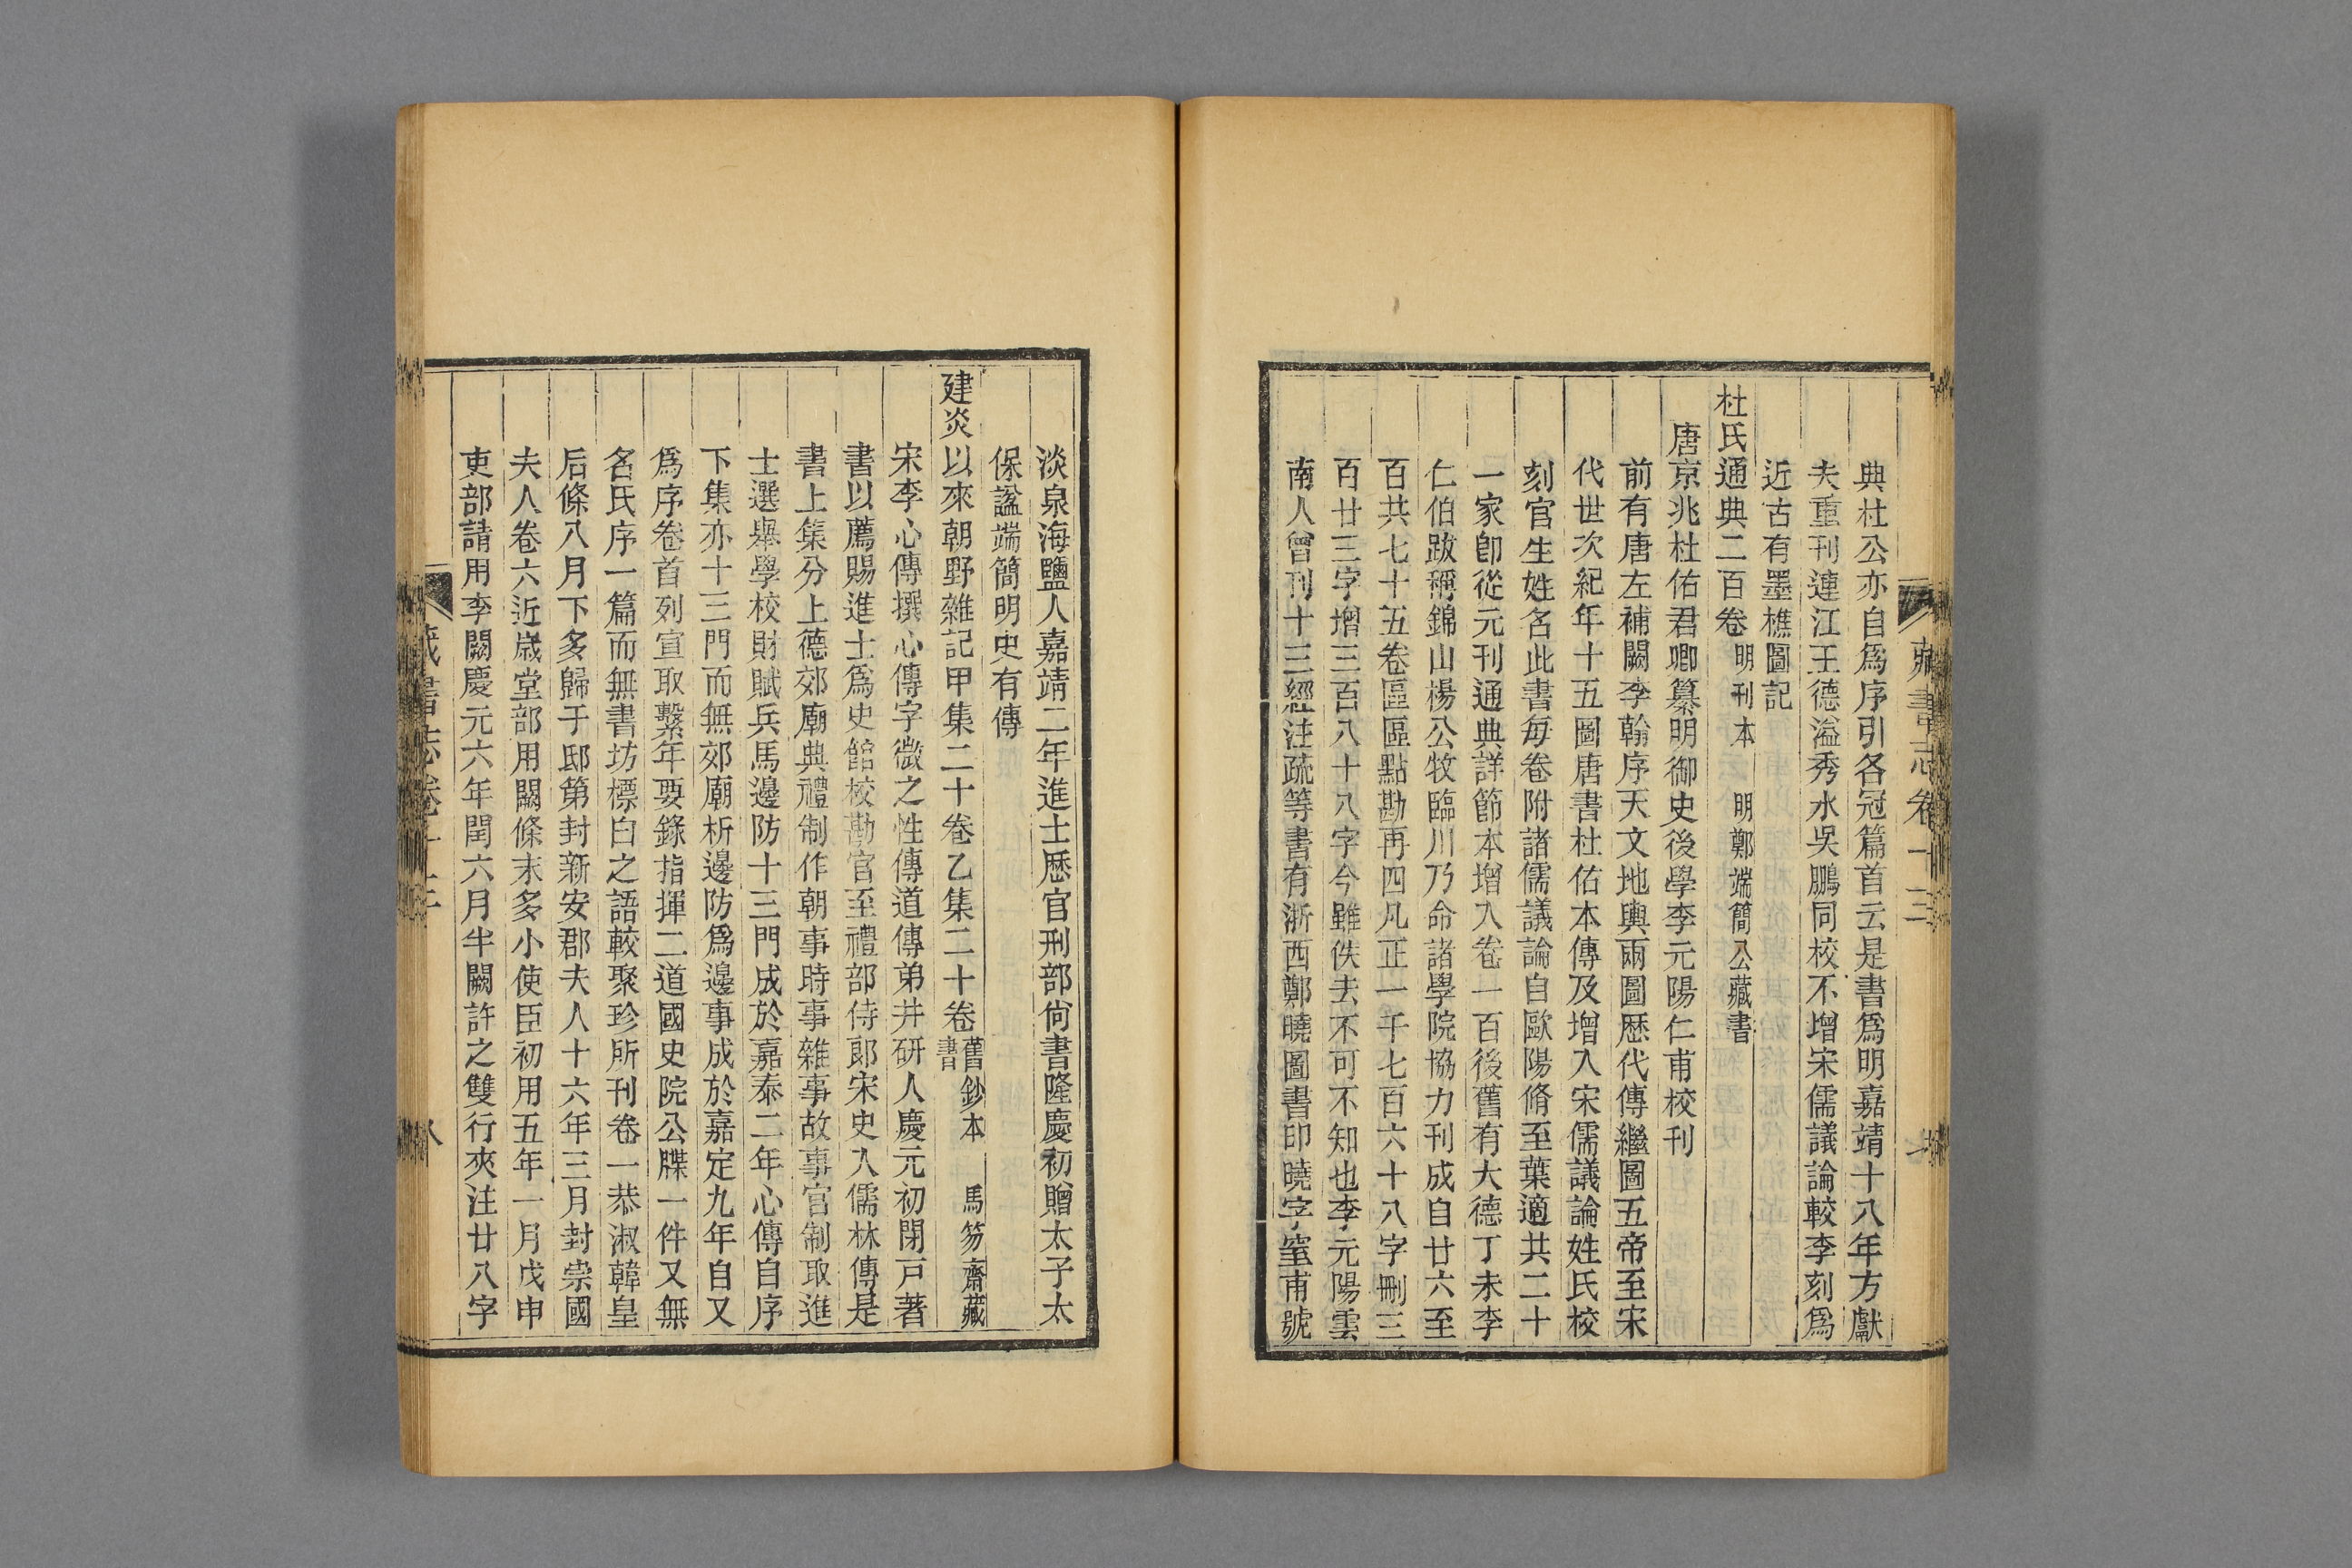 藏書志卷十三
七
典杜公亦自爲序引各冠篇首云是書爲明嘉靖十八年方獻
夫重刊連江王德溢秀水吳鵬同校不增宋儒議論較李刻爲
近古有墨樵圖記
杜氏通典二百卷 明刊本 明鄭端簡公藏書
唐京兆杜佑君卿纂明御史後學李元陽仁甫校刊
前有唐左補闕李翰序天文地輿兩圖歷代傳繼圖五帝至宋
代世次紀年十五圖唐書杜佑本傳及增入宋儒議論姓氏校
刻官生姓名此書每卷附諸儒議論自歐陽脩至葉適共二十
一家卽從元刊通典詳節本增入卷一百後舊有大德丁未李
仁伯跋稱錦山楊公牧臨川乃命諸學院協力刊成自廿六至
百共七十五卷區區點勘再四凡正一千七百六十八字刪三
百廿三字增三百八十八字今雖佚去不可不知也李元陽雲
南人曾刊十三經注疏等書有浙西鄭曉圖書印曉字窒甫號
淡泉海鹽人嘉靖二年進士歷官刑部尙書隆慶初贈太子太
保諡端簡明史有傳
建炎以來朝野雜記甲集二十卷乙集二十卷 舊鈔本 馬笏齋藏書
宋李心傳撰心傳字微之性傳道傳弟井硏人慶元初閉戸著
書以薦賜進士爲史館校勘官至禮部侍郞宋史入儒林傳是
書上集分上德郊廟典禮制作朝事時事雜事故事官制取進
士選舉學校財賦兵馬邊防十三門成於嘉泰二年心傳自序
下集亦十三門而無郊廟析邊防爲邊事成於嘉定九年自又
爲序卷首列宣取繫年要錄指揮二道國史院公牒一件又無
名氏序一篇而無書坊標白之語較聚珍所刊卷一恭淑韓皇
后條八月下多歸于邸第封新安郡夫人十六年三月封崇國
夫人卷六近歲堂部用闕條末多小使臣初用五年一月戊申
吏部請用李闕慶元六年閏六月半闕許之雙行夾注廿八字
藏書志卷十三
八